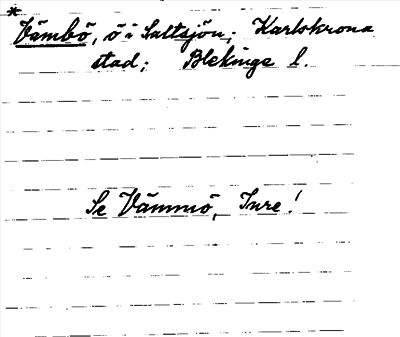 *
Vämbö, ö i Saltsjön; Karlskrona
stad; Blekinge l.
Se Vämmö, Inre!